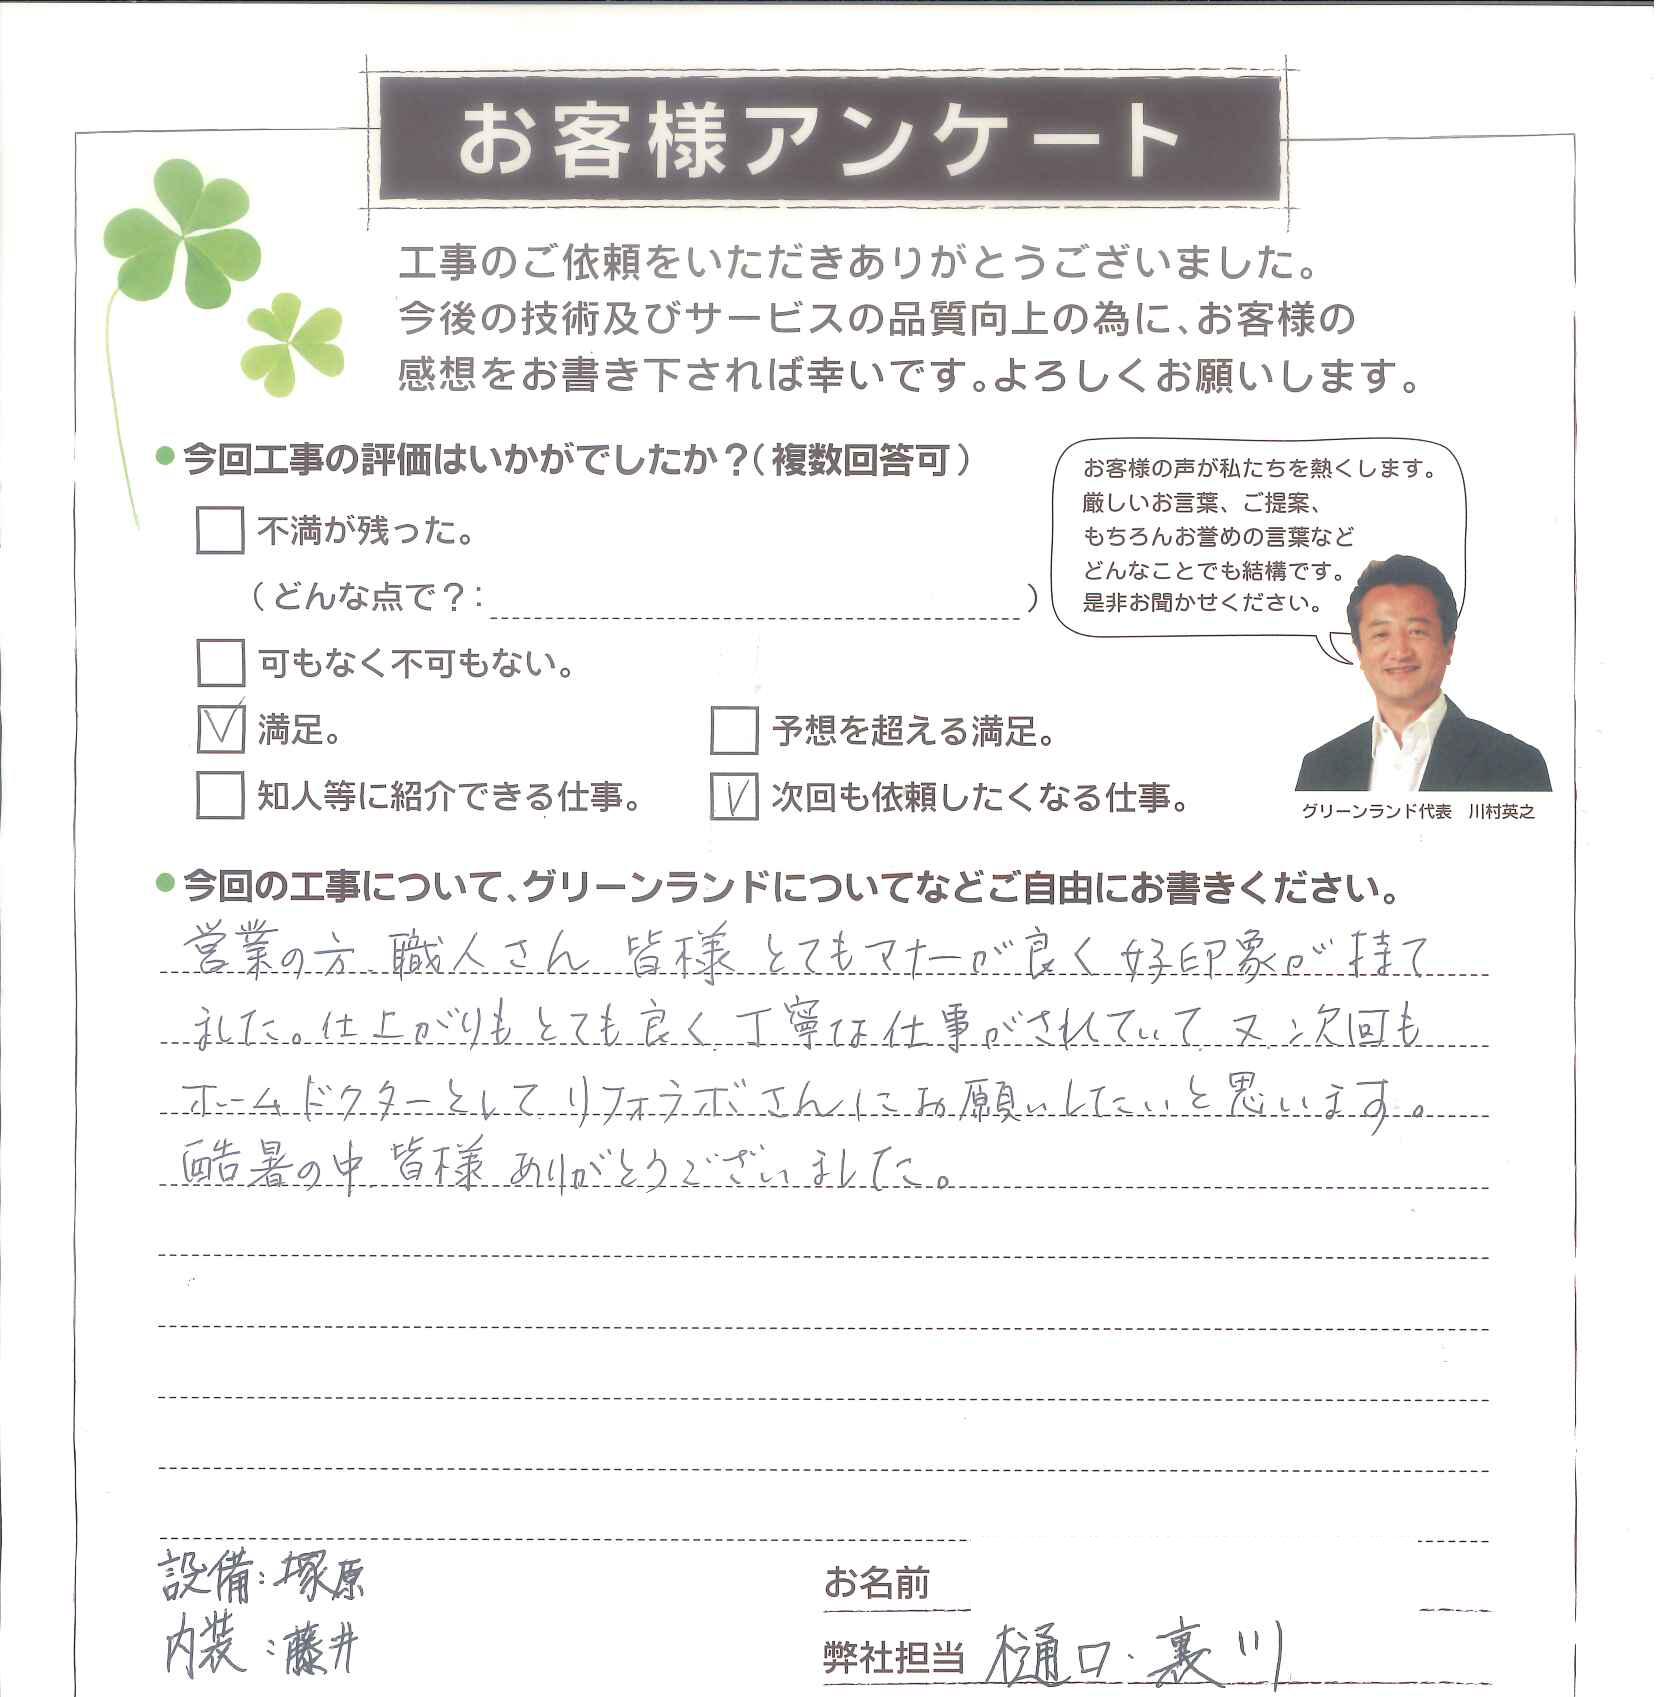 お客様アンケート
工事のご依頼をいただきありがとうございました。
今後の技術及びサービスの品質向上の為に、お客様の
感想をお書き下されば幸いです。よろしくお願いします。
●今回工事の評価はいかがでしたか？（複数回答可）
不満が残った。
（どんな点で？：　　　）
可もなく不可もない。
満足。
予想を超える満足。
知人等に紹介できる仕事。
次回も依頼したくなる仕事。
お客様の声が私たちを熱くします。
厳しいお言葉、ご提案、
もちろんお誉めの言葉など
どんなことでも結構です。
是非お聞かせください。
グリーンランド代表　川村英之
●今回の工事について、グリーンランドについてなどご自由にお書きください。
営業の方、職人さん 皆様 とてもマナーが良く 好印象が 持て
ました。仕上がりも とても 良く 丁寧な仕事がされていて、又、次回も
ホームドクターとして、リフォラボさんにお願いしたいと思います。
酷暑の中、皆様 ありがとうございました。
設備：塚原
内装：藤井
お名前
弊社担当 樋口・裏川